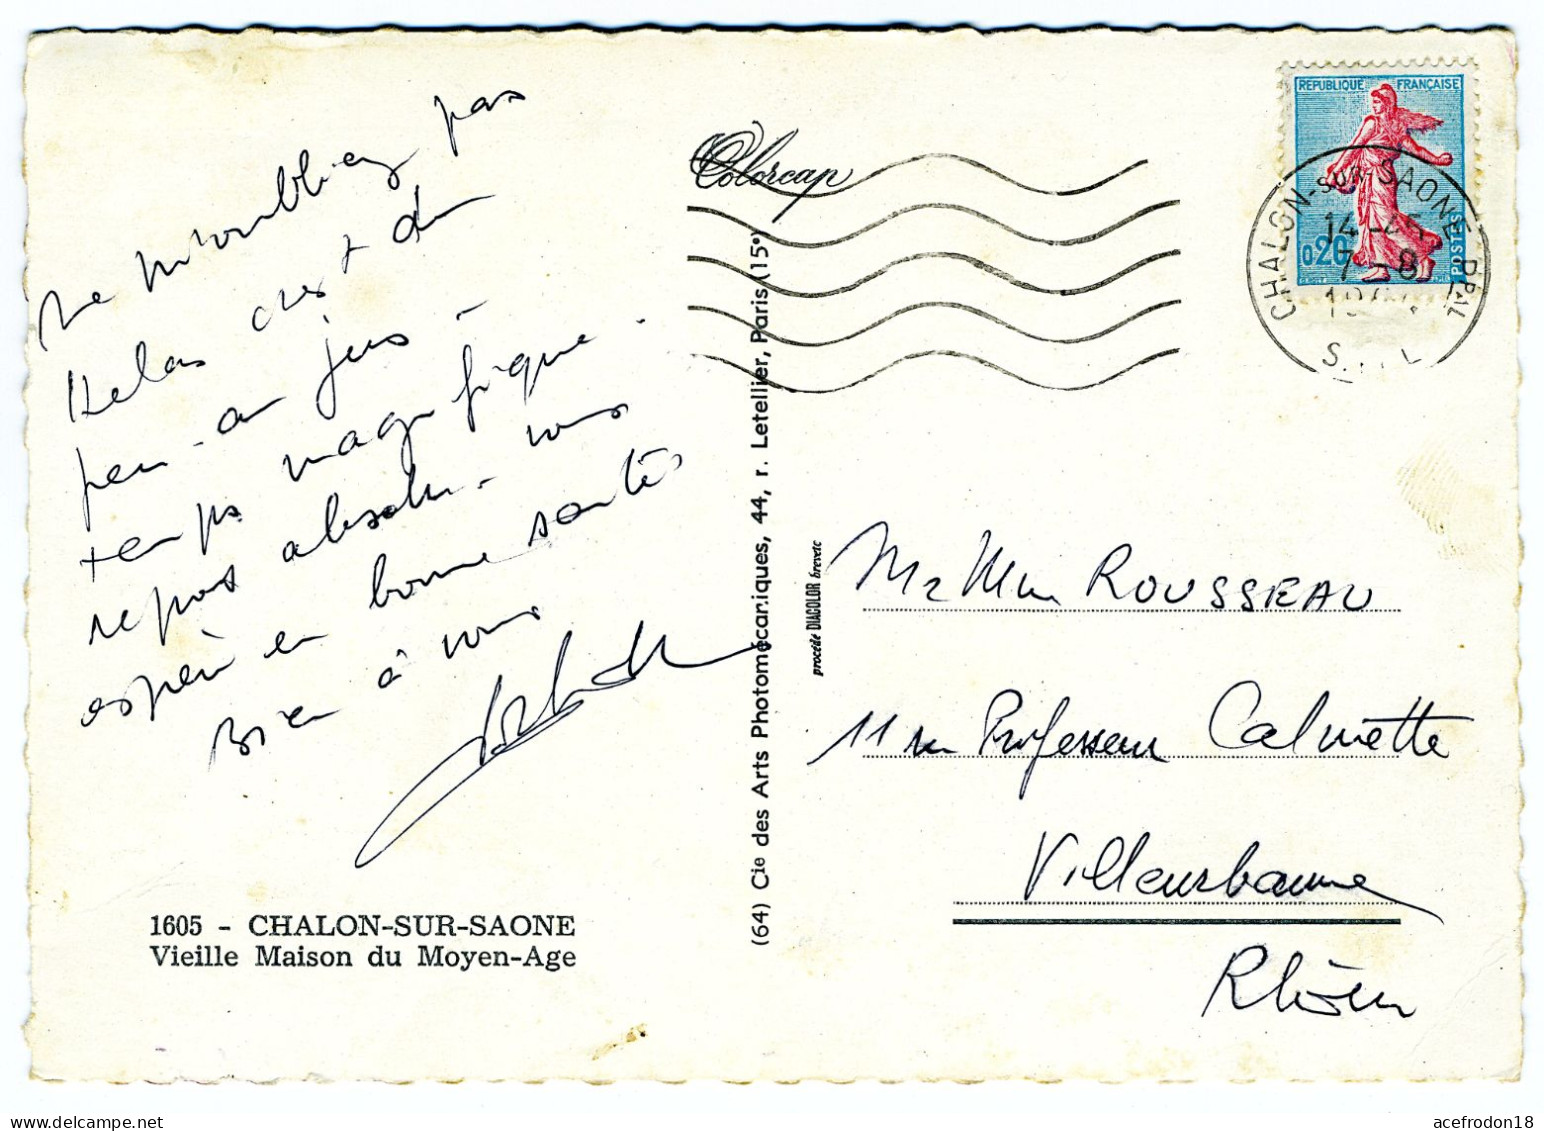 Ne m'oubliez pas
Hélas c'est du
peu-au jus -
temps magnifique.
repos absolu - vous
espère en bonne santé
Bien à vous
1605 - CHALON-SUR-SAONE
Vieille Maison du Moyen-Age
Colorcap
(64) Cie des Arts Photomécaniques, 44, r. Letellier, Paris (15e)
procédé DIACOLOR breveté
REPUBLIQUE FRANÇAISE
0,20
POSTES
CHALON-SUR-SAONE PPAL
14-45
7-8
Mr Mme ROUSSEAU
11 rue Professeur Calmette
Villeurbanne
Rhône
acefrodon18